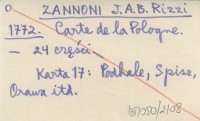 ZANNONI J.A.B. Rizzi
1772. Carte de la Pologne.
— 24 części —
Karta 17: Podhale, Spisz,
Orawa itd.